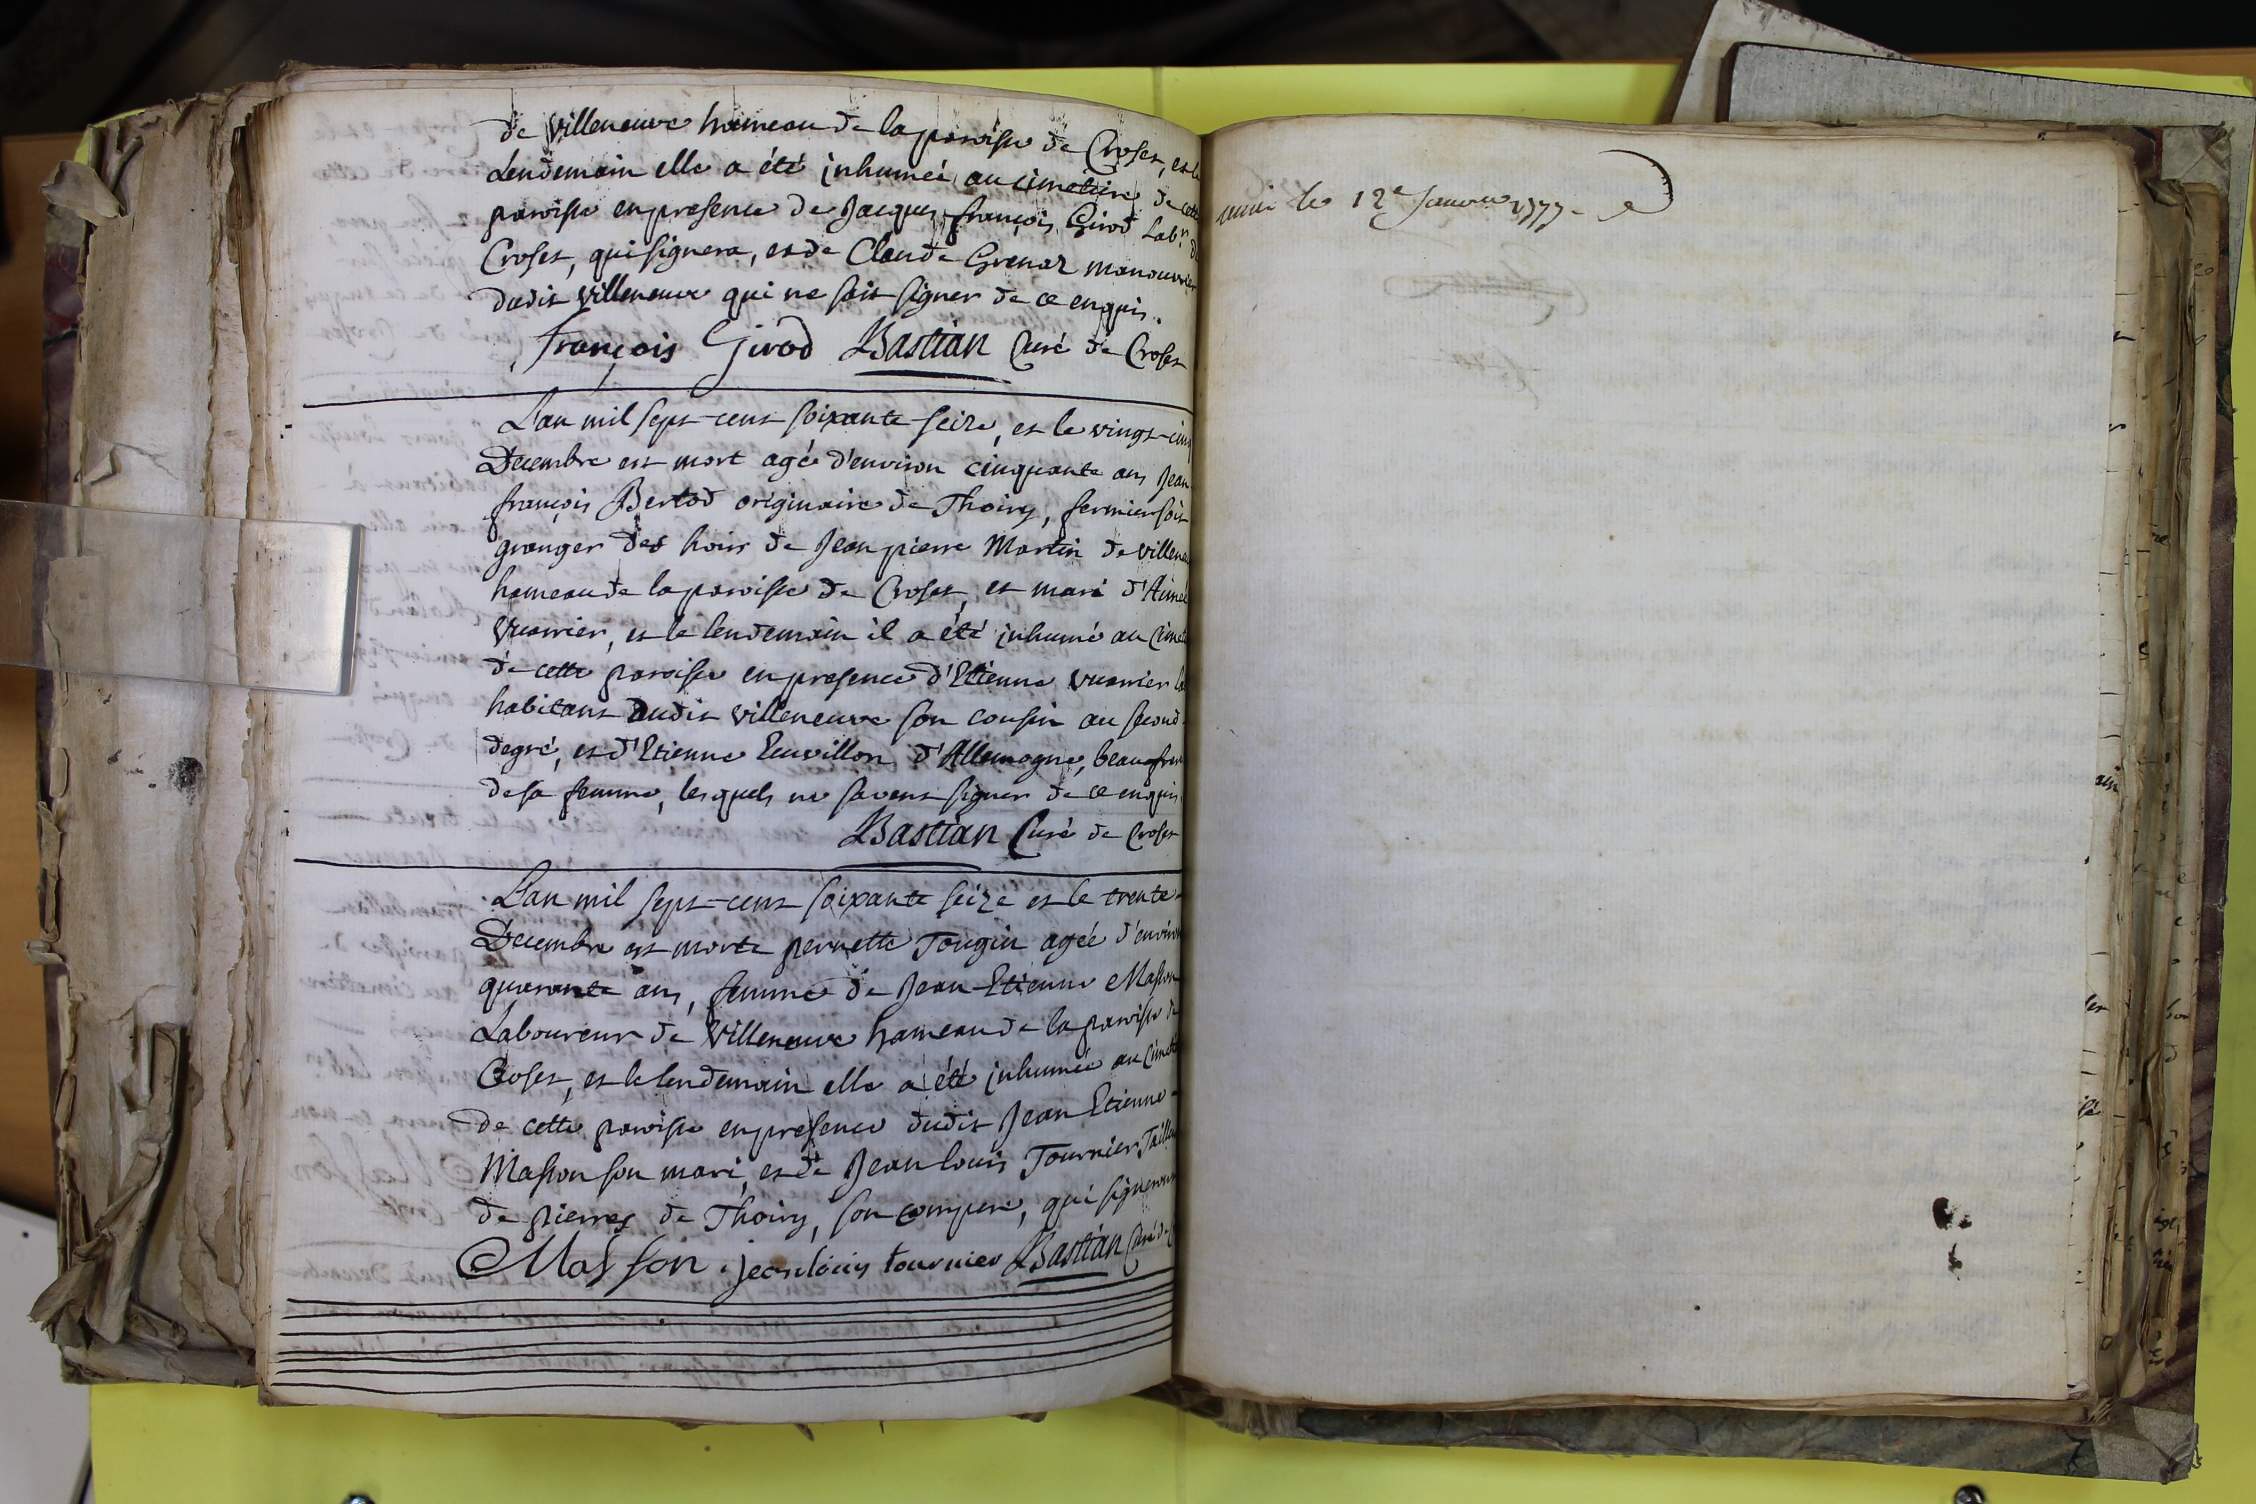 de Villeneuve hameau de la paroisse de Croset, et le
Lendemain elle a été inhumée au cimetiere de cette
paroisse en presence de Jacques-françois Girod Lab.r de
Croset, qui signera, et de Claude Grenaz manouvrier
dudit Villeneuve qui ne sait signer de ce enquis.
François Girod Bastian Curé de Croset
L'an mil sept-cent soixante-seize, et le vingt-cinq
Decembre est mort agé d'environ cinquante ans Jean
françois Bertod originaire de Thoiry, fermier soit
granger des hoirs de Jean pierre Martin de villeneu
hameau de la paroisse de Croset, et mari d'Aimée
Vuarrier, et le lendemain il a été inhumé au Cimet
de cette paroisse en presence d'Etienne Vuarrier la
habitant dudit villeneuve son cousin au second
degré, et d'Etienne Euvillon d'Allemogne, beaufrere
de sa femme, lesquels ne savent signer de ce enquis
Bastian Curé de Croset
L'an mil sept-cent soixante seize et le trente
Decembre est morte pernette Tougin agée d'environ
quarante ans, femme de Jean-Etienne Masson
Laboureur de Villeneuve hameau de la paroisse de
Croset, et le lendemain elle a été inhumée au Cimet
de cette paroisse en presence dudit Jean Etienne
Masson son mari, et de Jean louis Tournier Tailleu
de pierres de Thoiry, son compere, qui signeront
Masson jean louis tournier Bastian Curé de C
le 12e Janvier 1777